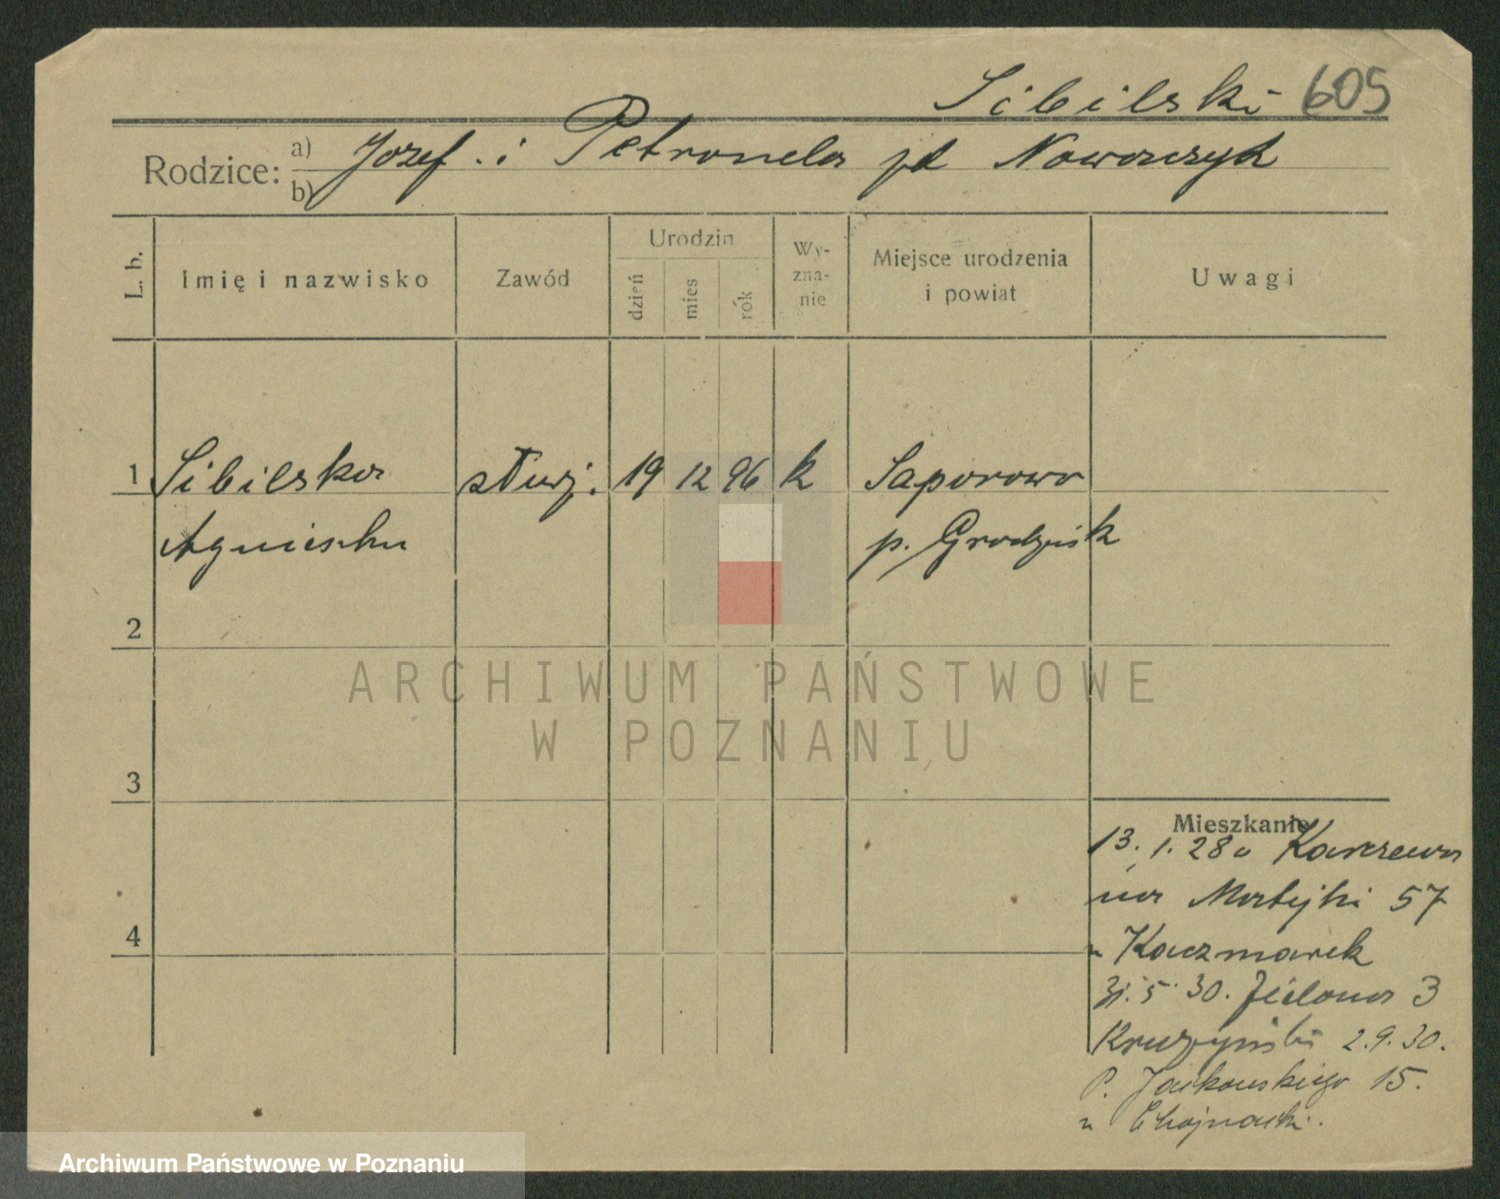 Sibilski 605
Rodzice: a) Jozef. i Petronela zd Nowaczyk
b)
L. b. Imię i nazwisko Zawód Urodzin dzień mies rok Wy-zna-nie Miejsce urodzenia i powiat Uwagi
1 Sibilska służ. 19 12 96 k Saporowo
Agnieszka p. Grodzisk
2
3
4
Mieszkanie
13. 1. 28 u Karczewa
na Matejki 57
u Kaczmarek
31. 5. 30. Zielona 3
Kruszyński 2.9.30.
P. Jackowskiego 15.
u Chojnacki.
ARCHIWUM PAŃSTWOWE
W POZNANIU
Archiwum Państwowe w Poznaniu